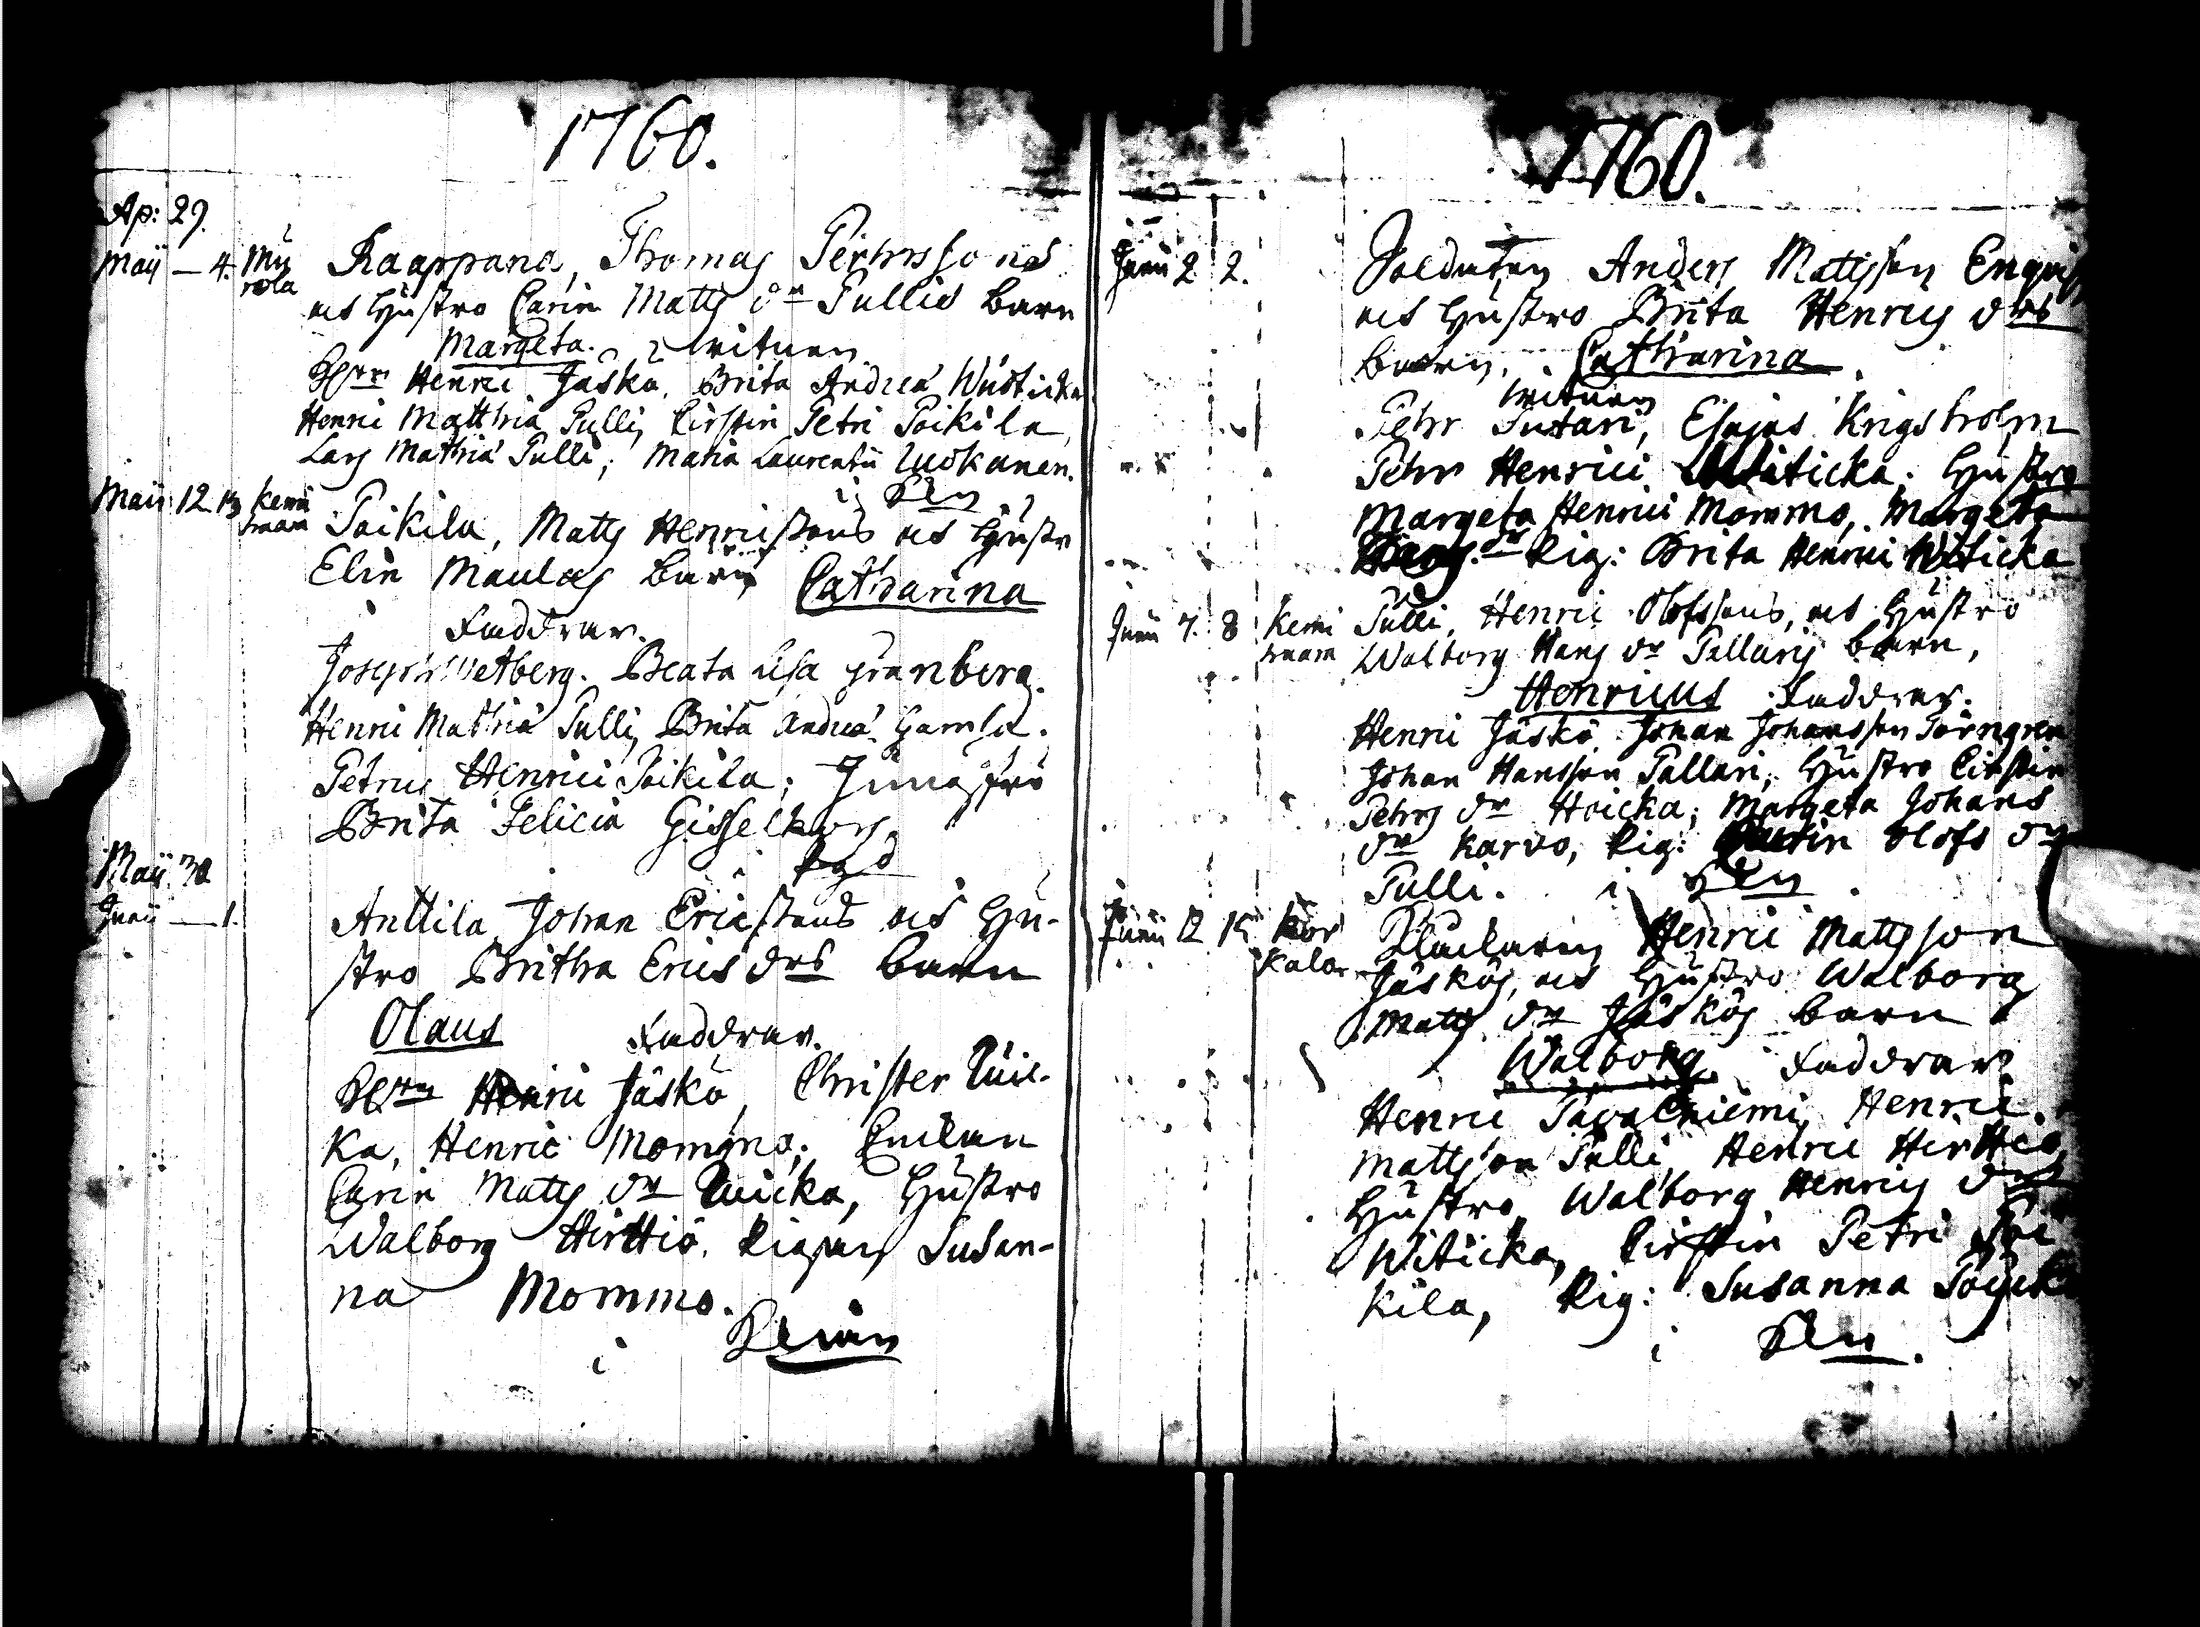 1760.
Ap: 29.
Maÿ — 4. Mu
rola
Raappana, Thomas Pehrssons
och Hustro Carin Matts dr Pullis barn
Margeta. witnen
Henric Jäskö, Brita Andreæ Wiiticka
Henric Matthiæ Pulli, Kirstin Petri Poikila,
Lars Mathiæ Pulli, Maria Laurentii Luokanen.
Maii 12. 13 Kemi
traam
Poikila, Matts Henricssons och Hustr
Elin Maulas barn Catharina
Faddrar.
Joseph Wetberg. Beata Lisa Granberg.
Henric Mathiæ Pulli, Brita Andreæ Gamla.
Petrus Henrici Poikila; Jungfru
Brita Felicia Gisselkors.
Maÿ 30
Junii — 1.
Anttila Johan Ericssons och Hu-
stro Britha Erics drs barn
Olaus Faddrar.
Henric Jäskö, Christer
ka, Henric Mommo;
Carin Matts dr Hustro
Walborg Hirttiö. Pigan Susan-
na Mommo.
i
1760.
Junii 2 2.
Soldaten Anders Mattsson
och Hustro Brita Henrics drs
barn, Catharina.
witnen
Pehr Sutari, Esajas Krigsholm
Pehr Henrici Wiiticka; Hustro
Margeta Henrici Mommo, Margeta
dr Pig: Brita Henrici Witicka
Junii 7. 8 Kemi
traam
Pulli, Henric Olofssons, och Hustro
Walborg Hans dr Pallaris barn,
Henricus Faddrar.
Henric Jäskö Johan Johansson Törngren
Johan Hansson Pallari, Hustro Kirstin
Pehrs dr Hoicka; Margeta Johans
dr Karvo, Pig: Olofs dr
Pulli. i
Junii 12 15 Kor
kalo
Klockaren Henric Mattsson
Jäskös, och Hustro Walborg
Matts dr Jäskös barn
Walborg. Faddrar
Henric Tavalniemi, Henric
Mattsson Pulli, Henric Hirttiö,
Hustro Walborg Henrics dr
Witicka, Kirstin Petri Poi
kila, Pig: Susanna
i